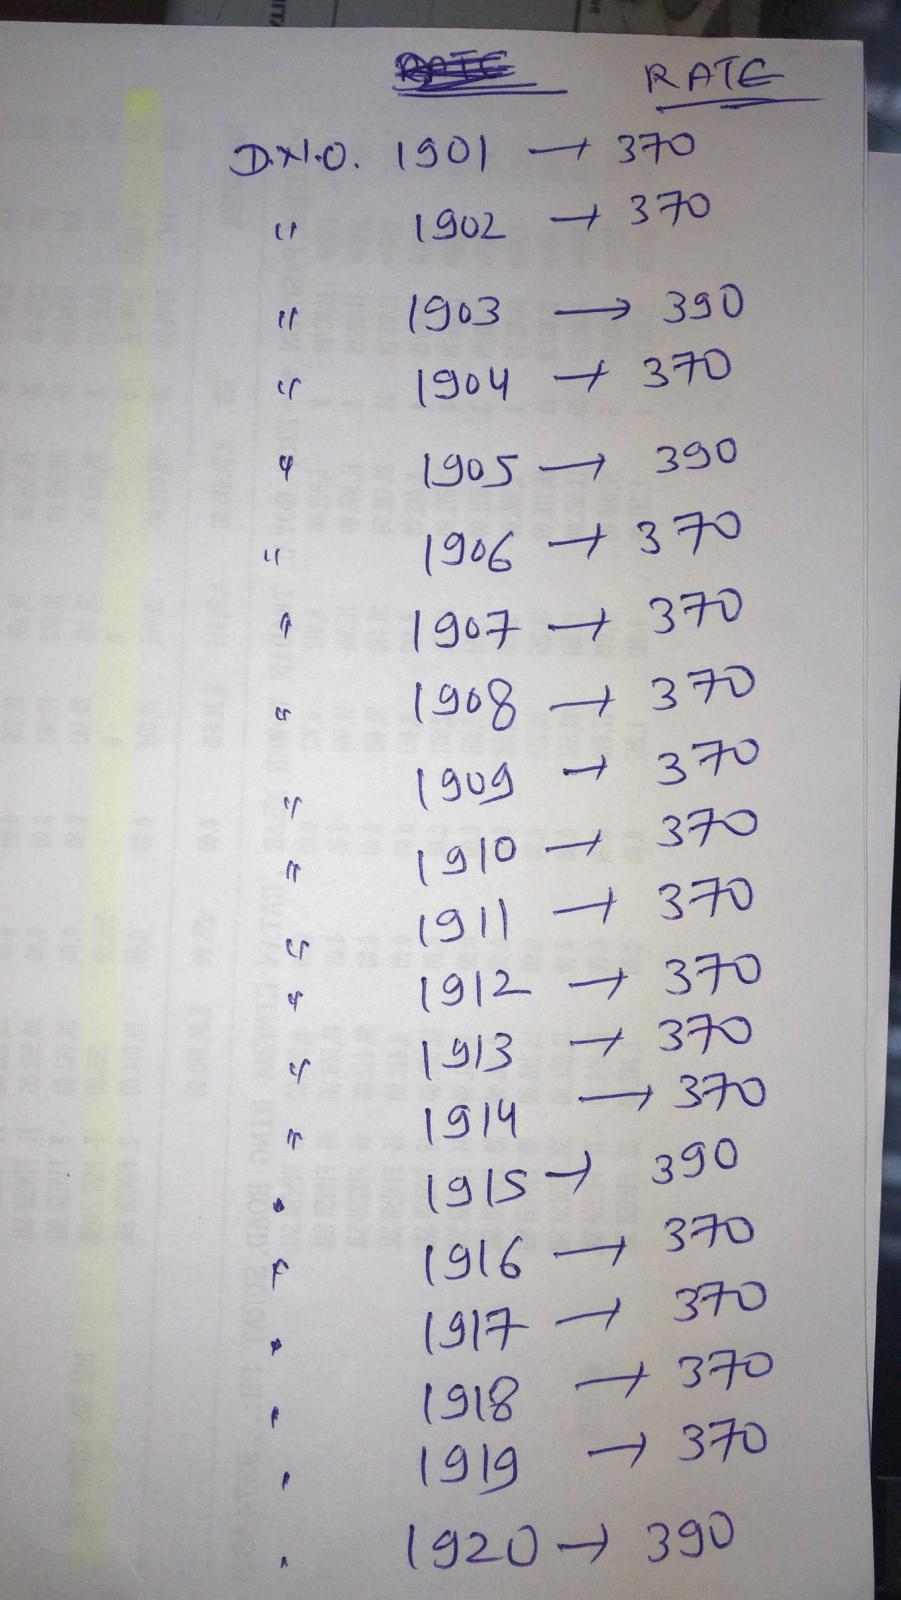 RATE
D.N.O. 1901 → 370
" 1902 → 370
" 1903 → 390
" 1904 → 370
" 1905 → 390
" 1906 → 370
" 1907 → 370
" 1908 → 370
" 1909 → 370
" 1910 → 370
" 1911 → 370
" 1912 → 370
" 1913 → 370
" 1914 → 370
" 1915 → 390
" 1916 → 370
" 1917 → 370
" 1918 → 370
" 1919 → 370
" 1920 → 390